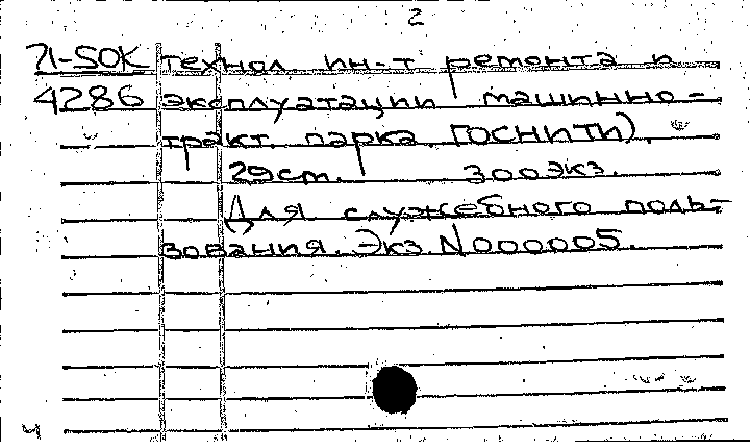 2
71-SOK технол. ин-т ремонта и
4286 эксплуатации машинно-
тракт. парка ГОСНИТИ).
29ст. 300экз.
Для служебного поль-
зования. Экз. N000005.
Ч